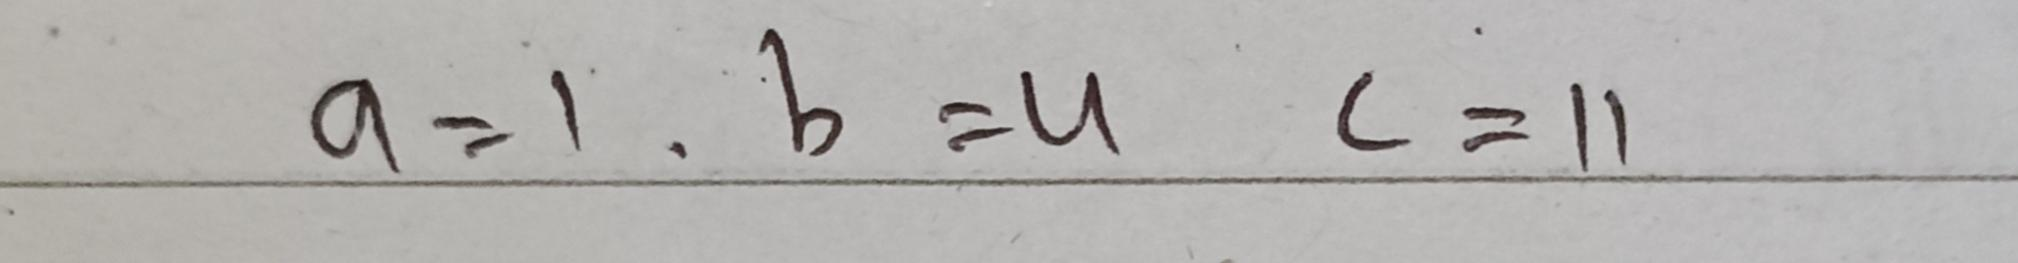 a = 1 . b = 4 c = 11